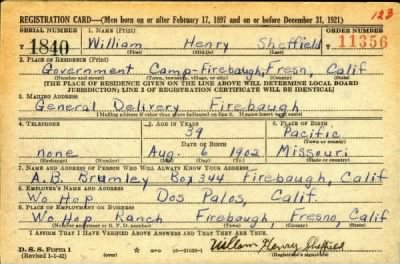 REGISTRATION CARD—(Men born on or after February 17, 1897 and on or before December 31, 1921) 123
SERIAL NUMBER 1. NAME (Print) ORDER NUMBER
T 1840 William Henry Sheffield 11356
(First) (Middle) (Last)
2. PLACE OF RESIDENCE (Print)
Government Camp-Firebaugh, Fresn, Calif
(Number and street) (Town, township, village, or city) (County) (State)
[THE PLACE OF RESIDENCE GIVEN ON THE LINE ABOVE WILL DETERMINE LOCAL BOARD
JURISDICTION; LINE 2 OF REGISTRATION CERTIFICATE WILL BE IDENTICAL]
3. MAILING ADDRESS
General Delivery Firebaugh
[Mailing address if other than place indicated on line 2. If same insert word same]
4. TELEPHONE 5. AGE IN YEARS 6. PLACE OF BIRTH
39 Pacific
DATE OF BIRTH (Town or county)
none Aug. 6 1902 Missouri
(Exchange) (Number) (Mo.) (Day) (Yr.) (State or country)
7. NAME AND ADDRESS OF PERSON WHO WILL ALWAYS KNOW YOUR ADDRESS
A.B. Brumley Box 344 Firebaugh, Calif
8. EMPLOYER'S NAME AND ADDRESS
Wo Hop Dos Palos, Calif.
9. PLACE OF EMPLOYMENT OR BUSINESS
Wo Hop Ranch Firebaugh, Fresno, Calif
(Number and street or R. F. D. number) (Town) (County) (State)
I AFFIRM THAT I HAVE VERIFIED ABOVE ANSWERS AND THAT THEY ARE TRUE.
D. S. S. Form 1 GPO 16—21630-1 William Henry Sheffield
(Revised 1-1-42) (Registrant's signature)